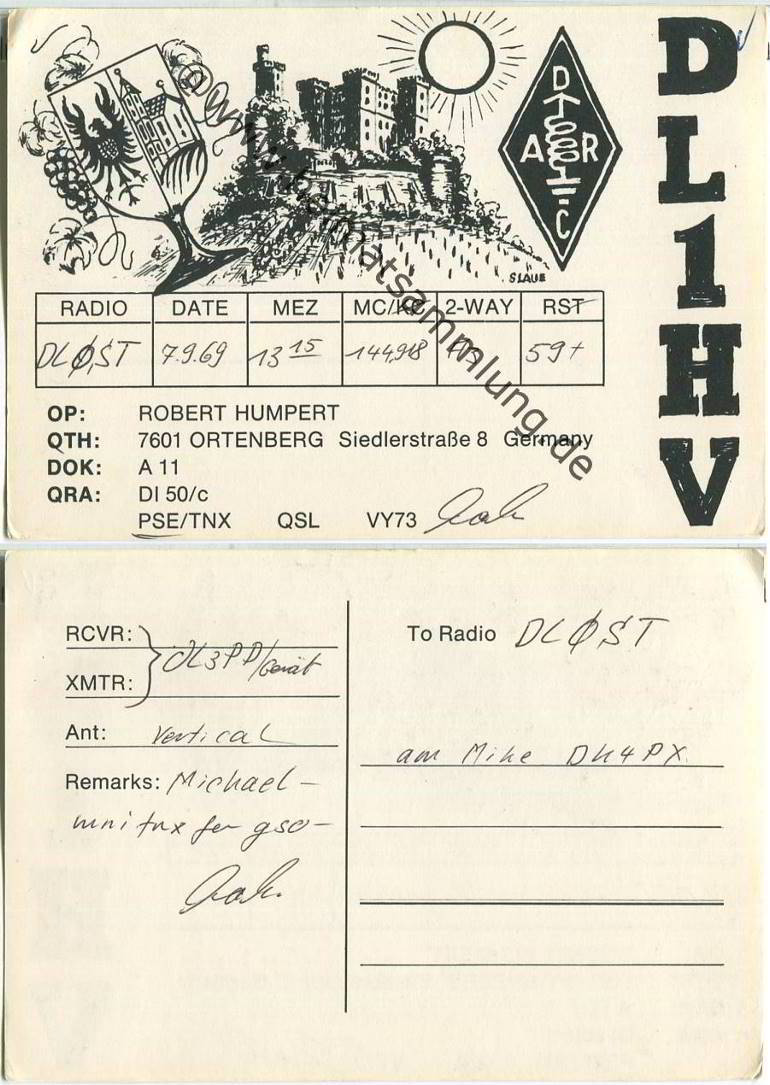 DL1HV
D
A R
C
SLAUE
@www.heimatsammlung.de
RADIO DATE MEZ MC/KC 2-WAY RST
DLØST 7.9.69 13 15 59+
OP: ROBERT HUMPERT
QTH: 7601 ORTENBERG Siedlerstraße 8 Germany
DOK: A 11
QRA: DI 50/c
PSE/TNX QSL VY73
RCVR:
XMTR:
DL3PD/Gerät
Ant: Vertical
Remarks: Michael –
mni tnx fer qso –
To Radio DLØST
am Mike DK4PX